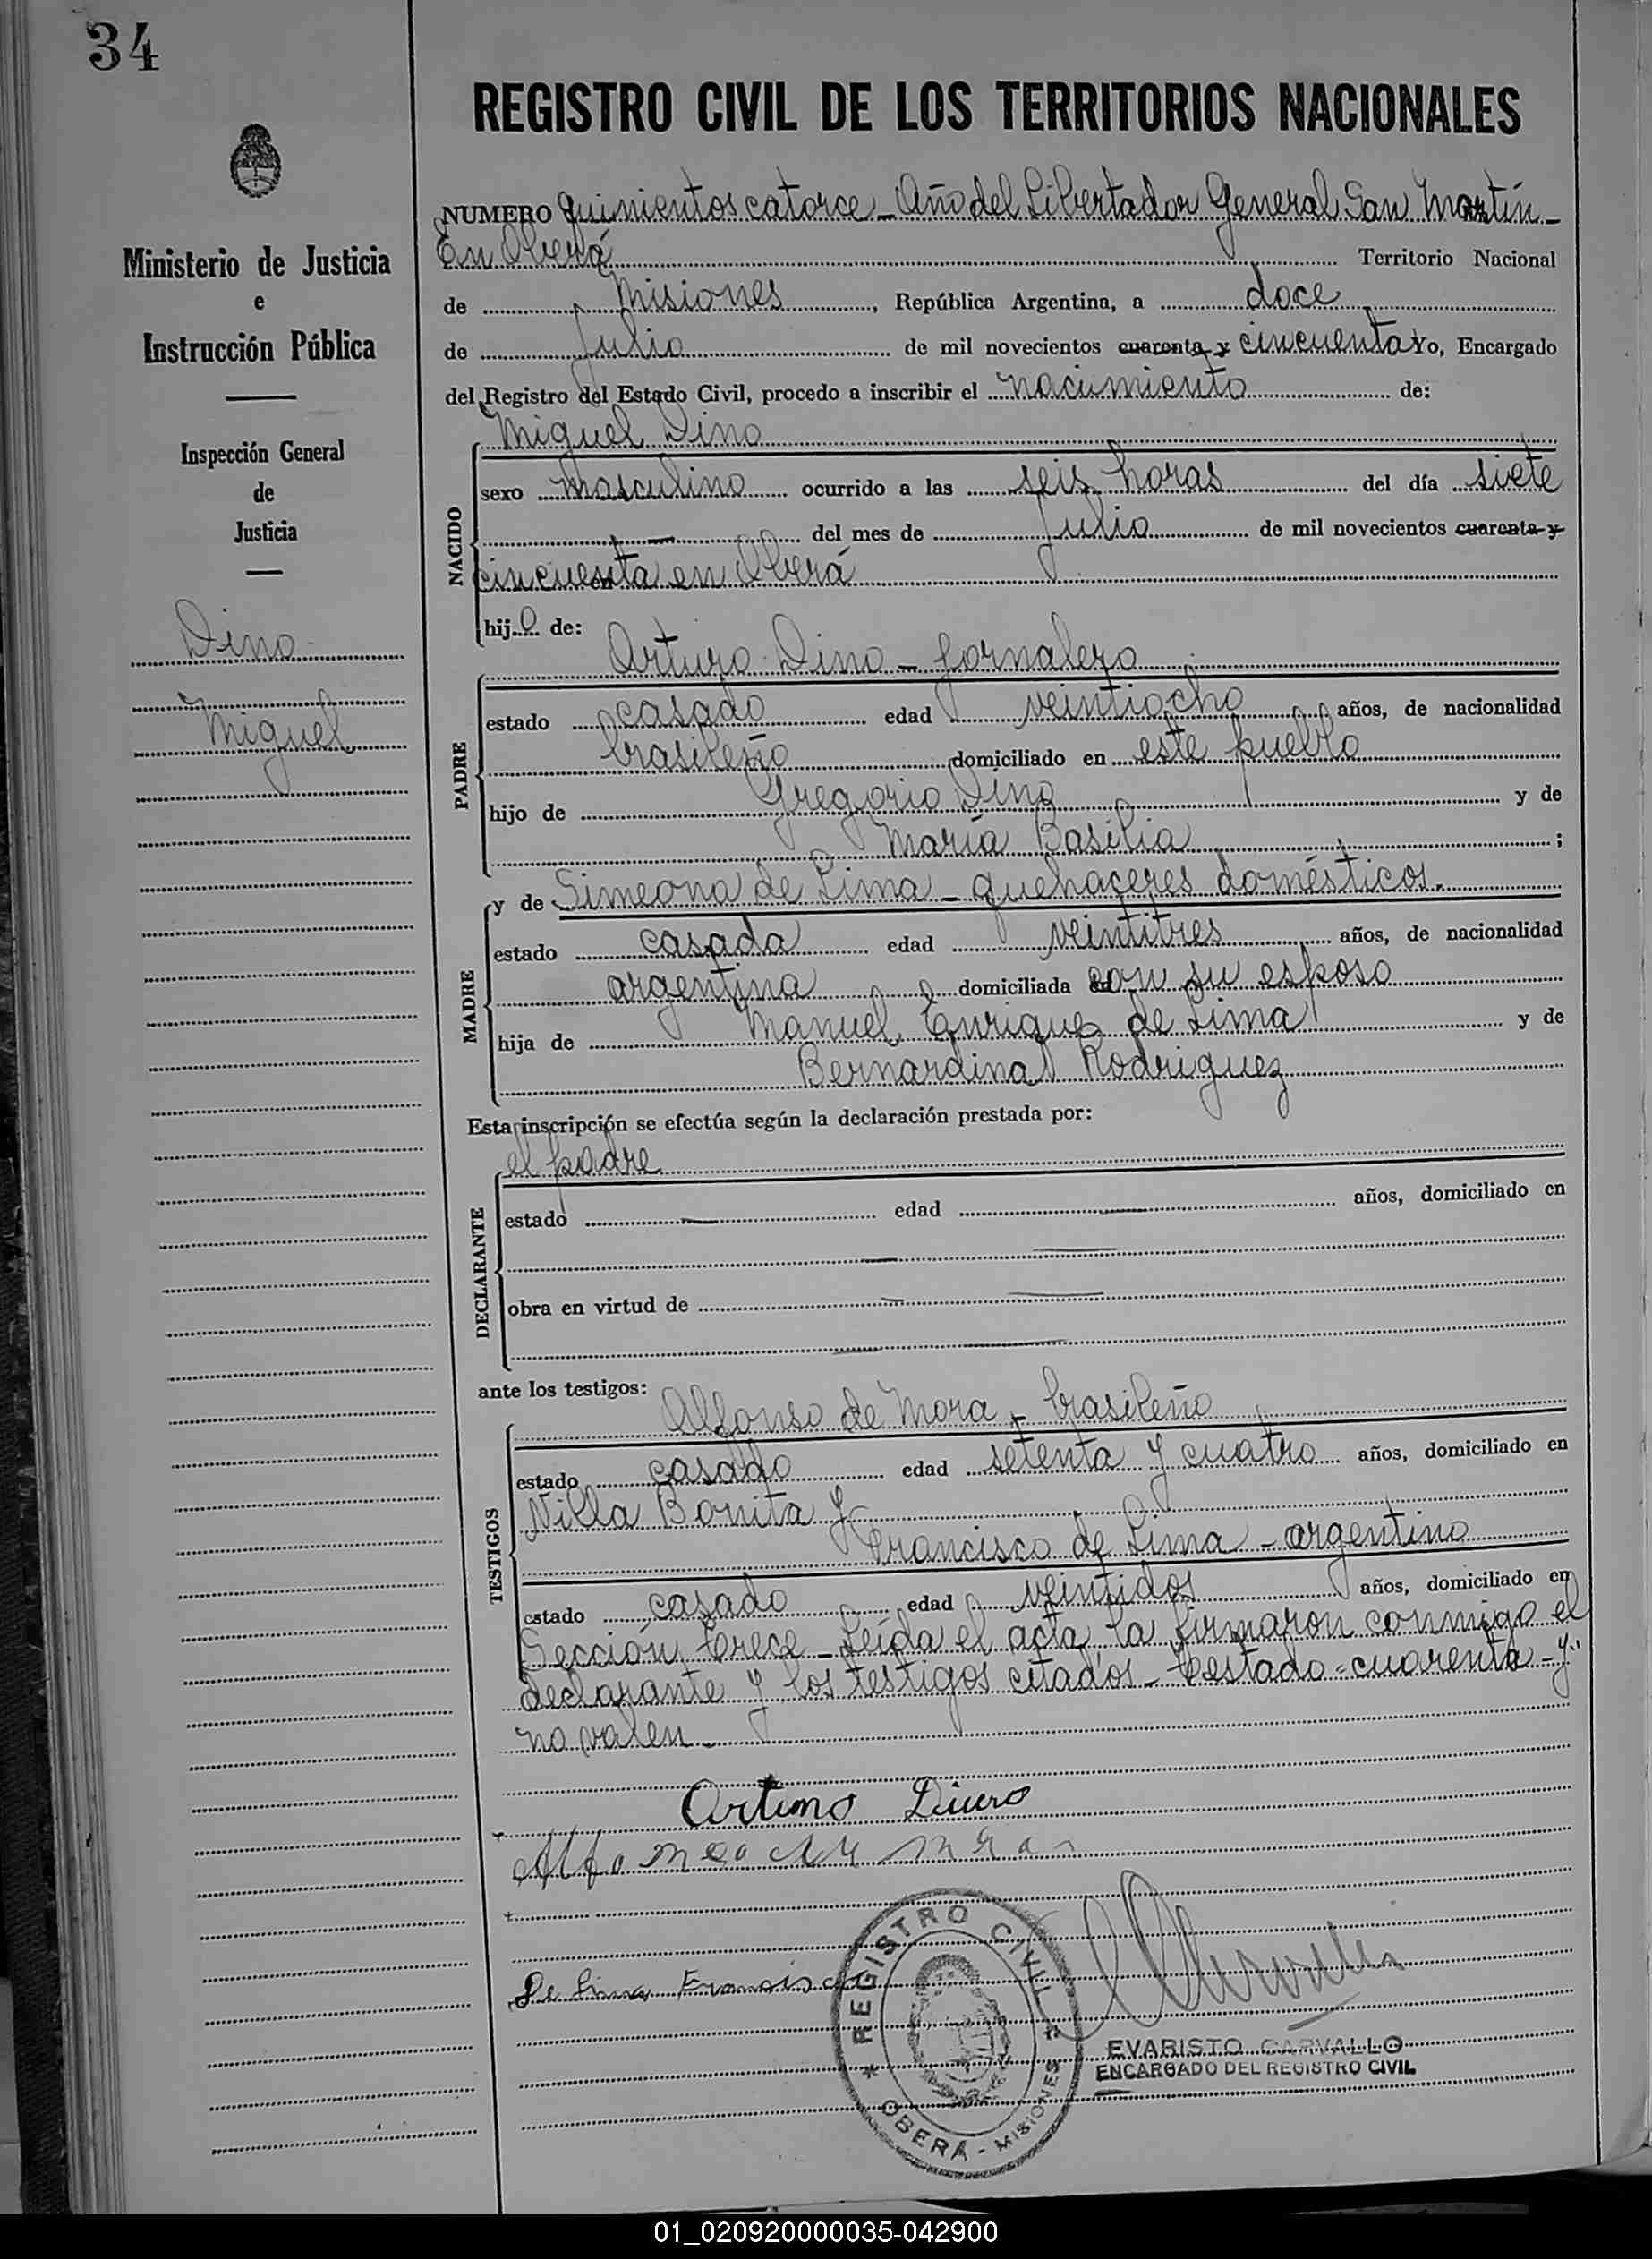 34
REGISTRO CIVIL DE LOS TERRITORIOS NACIONALES
Ministerio de Justicia
e
Instrucción Pública
Inspección General
de
Justicia
Dino
Miguel
NUMERO quinientos catorce - Año del Libertador General San Martín -
En Oberá Territorio Nacional
de Misiones, República Argentina, a doce
de Julio de mil novecientos cuarenta y cincuenta Yo, Encargado
del Registro del Estado Civil, procedo a inscribir el nacimiento de:
Miguel Dino
NACIDO
sexo masculino ocurrido a las seis horas del día siete
— del mes de Julio de mil novecientos cuarenta y
cincuenta en Oberá
hijo de:
Arturo Dino - jornalero
PADRE
estado casado edad veintiocho años, de nacionalidad
brasileño domiciliado en este pueblo
hijo de Gregorio Dino y de
María Basilia ;
MADRE
y de Simeona de Lima - quehaceres domésticos.
estado casada edad veintitres años, de nacionalidad
argentina domiciliada con su esposo
hija de Manuel Enrique de Lima y de
Bernardina Rodriguez
Esta inscripción se efectúa según la declaración prestada por:
el padre
DECLARANTE
estado — edad — años, domiciliado en
obra en virtud de —
ante los testigos:
Alfonso de Mora - brasileño
TESTIGOS
estado casado edad setenta y cuatro años, domiciliado en
Villa Bonita y
Francisco de Lima - argentino
estado casado edad veintidos años, domiciliado en
Sección trece - Leída el acta la firmaron conmigo el
declarante y los testigos citados - Testado = cuarenta - y"
no valen -
Arturo Dino
De Lima Francisco
REGISTRO CIVIL
OBERÁ - MISIONES
EVARISTO CARVALLO
ENCARGADO DEL REGISTRO CIVIL
01_020920000035-042900